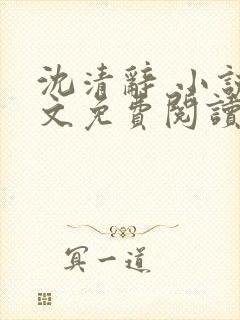 沈清辭 小說
文免費閱讀
冥一道